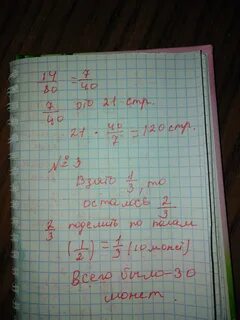 14/80 = 7/40
7/40 это 21 стр.
21 · 40/7 = 120 стр.
№ 3
Взято 1/3, то
осталось 2/3
2/3 поделить по полам
(1/2) = 1/3 (10 монет)
Всего было - 30
монет.